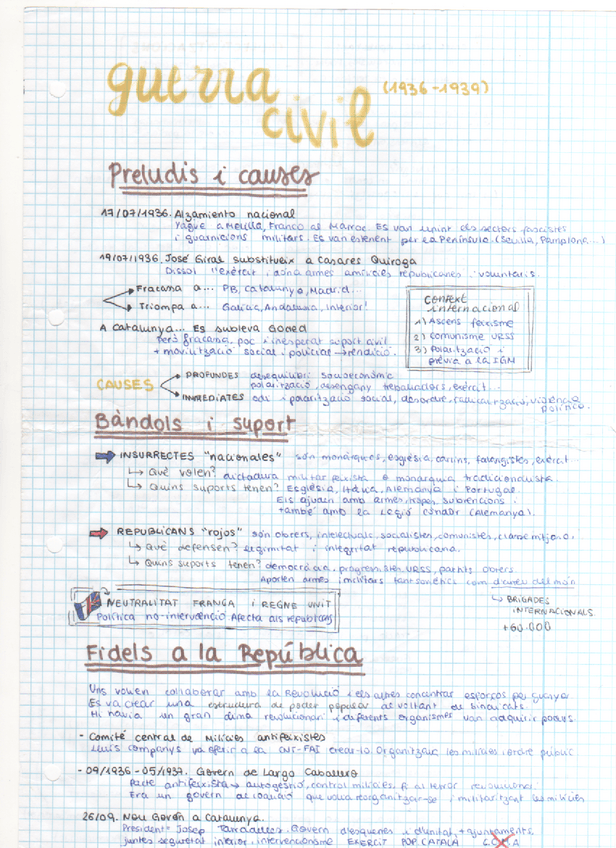 guerra civil (1936-1939)
Preludis i causes
17/07/1936. Alzamiento nacional
Yagüe a Melilla, Franco al Marroc. Es van unint els sectors feixistes
i guarnicions militars. Es van estenent per la Península. (Sevilla, Pamplona...)
19/07/1936. José Giral substitueix a Casares Quiroga
Dissol l'exèrcit i dóna armes a milícies republicanes i voluntaris.
Fracassa a... PB, Catalunya, Madrid...
Triompa a... Galícia, Andalusia, interior!
Context internacional
1) Ascens feixisme
2) Comunisme URSS
3) Polarització i prèvia a la SGM
A Catalunya... Es subleva Goded
Però fracassa, poc i inesperat suport civil
+ movilització social i policial → rendició.
CAUSES
PROFUNDES desequilibri socioeconòmic
polarització, desengany treballadors, exèrcit...
INMEDIATES odi i polarització social, desordre, radicalització, violència política.
Bàndols i suport
INSURRECTES "nacionales" són monàrquics, església, carlins, falangistes, exèrcit
Què volen? dictadura militar feixista o monarquia tradicionalista.
Quins suports tenen? Església, Itàlia, Alemanya i Portugal.
Els ajuden amb armes, tropes, subvencions i
també amb la Legió Cóndor (Alemanya).
REPUBLICANS "rojos" són obrers, intelectuals, socialistes, comunistes, classe mitjana.
Què defensen? legimitat i integritat republicana.
Quins suports tenen? democràcia, progressistes, URSS, partits obrers.
Aporten armes i militars tant soviètics com d'arreu del món
BRIGADES INTERNACIONALS
+60.000
NEUTRALITAT FRANÇA i REGNE UNIT
Política no-intervenció Afecta als republicans
Fidels a la República
Uns volien collaborar amb la Revolució i els altres concentrar esforços per guanyar
Es va crear una estructura de poder popular al voltant de sindicats.
Hi havia un gran clima revolucionari i diferents organismes van adquirir poders.
- Comité central de Milícies antifeixistes
Lluís Companys va oferir a la CNT-FAI crear-lo. Organitzava les milícies i ordre públic
- 09/1936 - 05/1937. Govern de Largo Caballero
Pacte antifeixista → autogestió, control milícies, fi al terror revolucionari.
Era un govern de coalició que volia reorganitzar-se i militaritzant les milícies
26/09. Nou Govern a Catalunya.
President Josep Tarradellas. Govern d'esquerres i d'unitat, + ajuntaments,
juntes seguretat interior, intervencionisme EXÈRCIT POP. CATALÀ